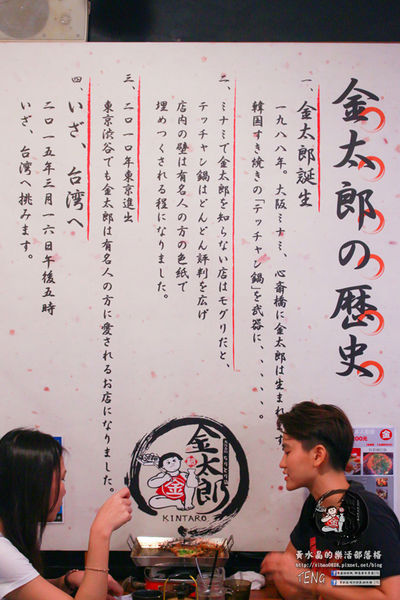 金太郎の歴史
一、金太郎誕生
一九八八年。大阪ミナミ、心斎橋に金太郎は生まれ
す。
韓国すき焼きの「テッチャン鍋」を武器に、、、、、。
二、ミナミで金太郎を知らない店はモグリだと、
テッチャン鍋はどんどん評判を広げ
店内の壁は有名人の方の色紙で
埋めつくされる程になりました。
三、二〇一〇年東京進出
東京渋谷でも金太郎は有名人の方に愛されるお店になりました。
四、いざ、台湾へ
二〇一五年三月一六日午後五時
いざ、台湾へ挑みます。
金太郎
金
KINTARO
金
00元
黃水晶的樂活部落格
TENG